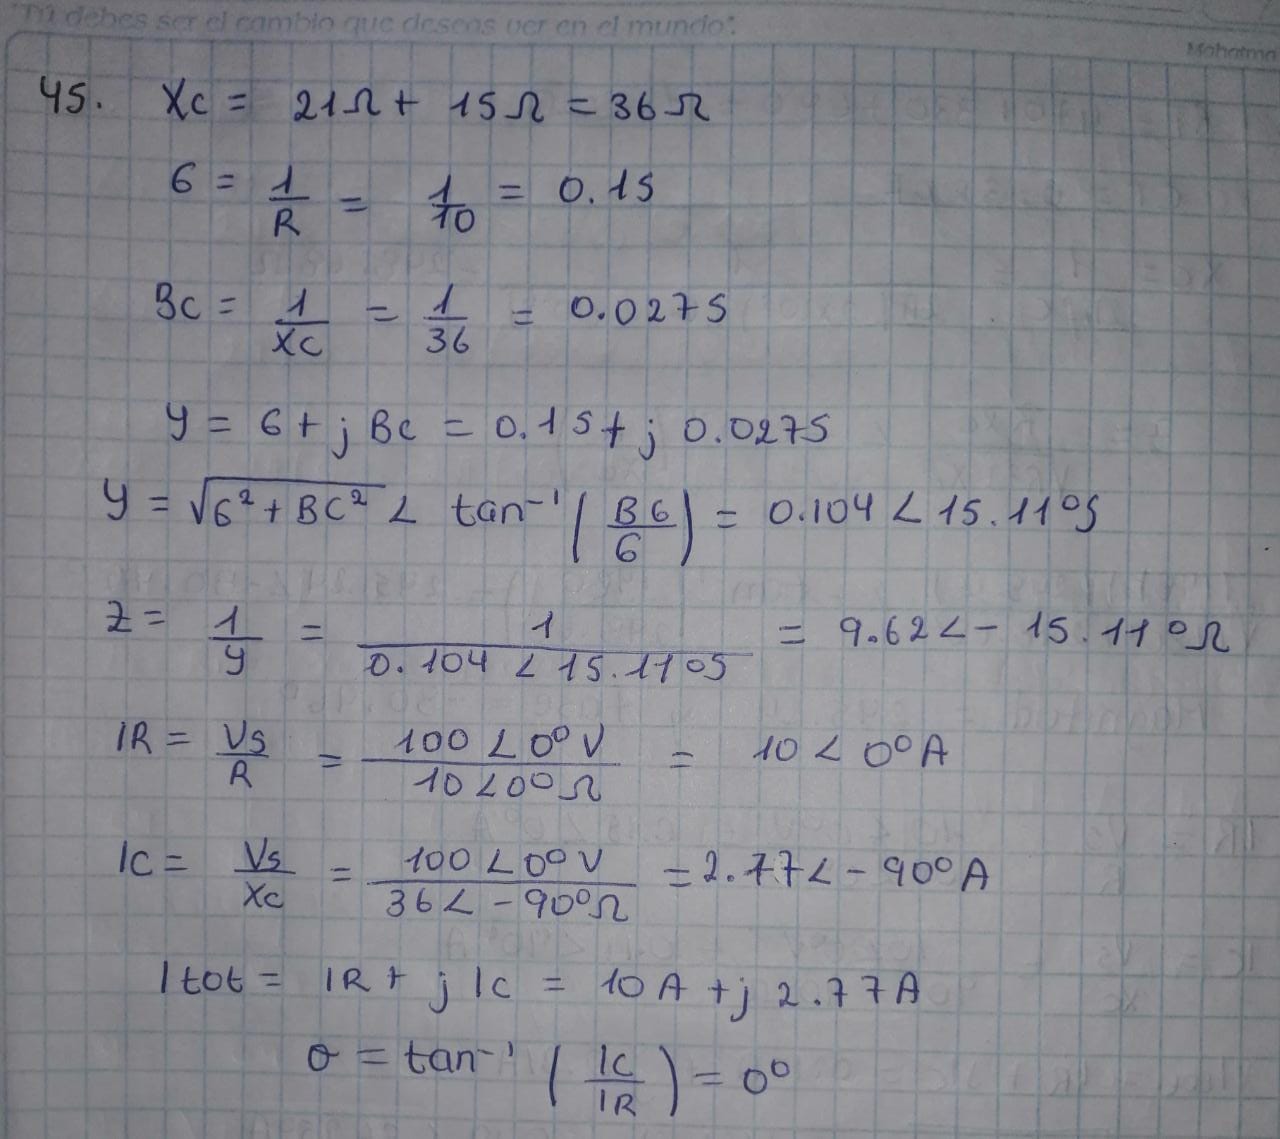 "Tú debes ser el cambio que deseas ver en el mundo".
Mahatma
45. Xc = 21Ω + 15Ω = 36Ω
G = 1/R = 1/10 = 0.1S
Bc = 1/Xc = 1/36 = 0.027S
y = G + j Bc = 0.1S + j 0.027S
y = √G² + BC² < tan⁻¹ (BG/G) = 0.104 < 15.11°S
Z = 1/y = 1/0.104 < 15.11°S = 9.62 < - 15.11°Ω
IR = Vs/R = 100 < 0° V/10 < 0°Ω = 10 < 0° A
IC = Vs/Xc = 100 < 0° V/36 < - 90°Ω = 2.77 < - 90° A
Itot = IR + j Ic = 10A + j 2.77A
θ = tan⁻¹ (IC/IR) = 0°